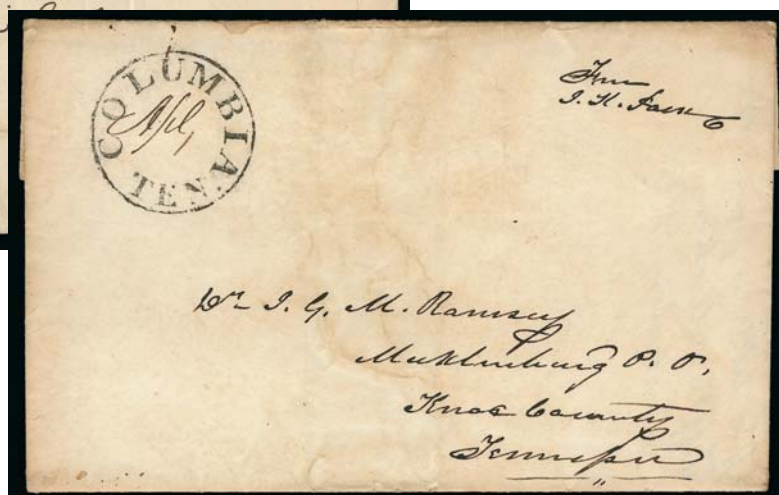 COLUMBIA
TEN.
Free
J. K. Polk
Dr J. G. M. Ramsey
Mecklenburg P. O.
Knox County
Tennessee